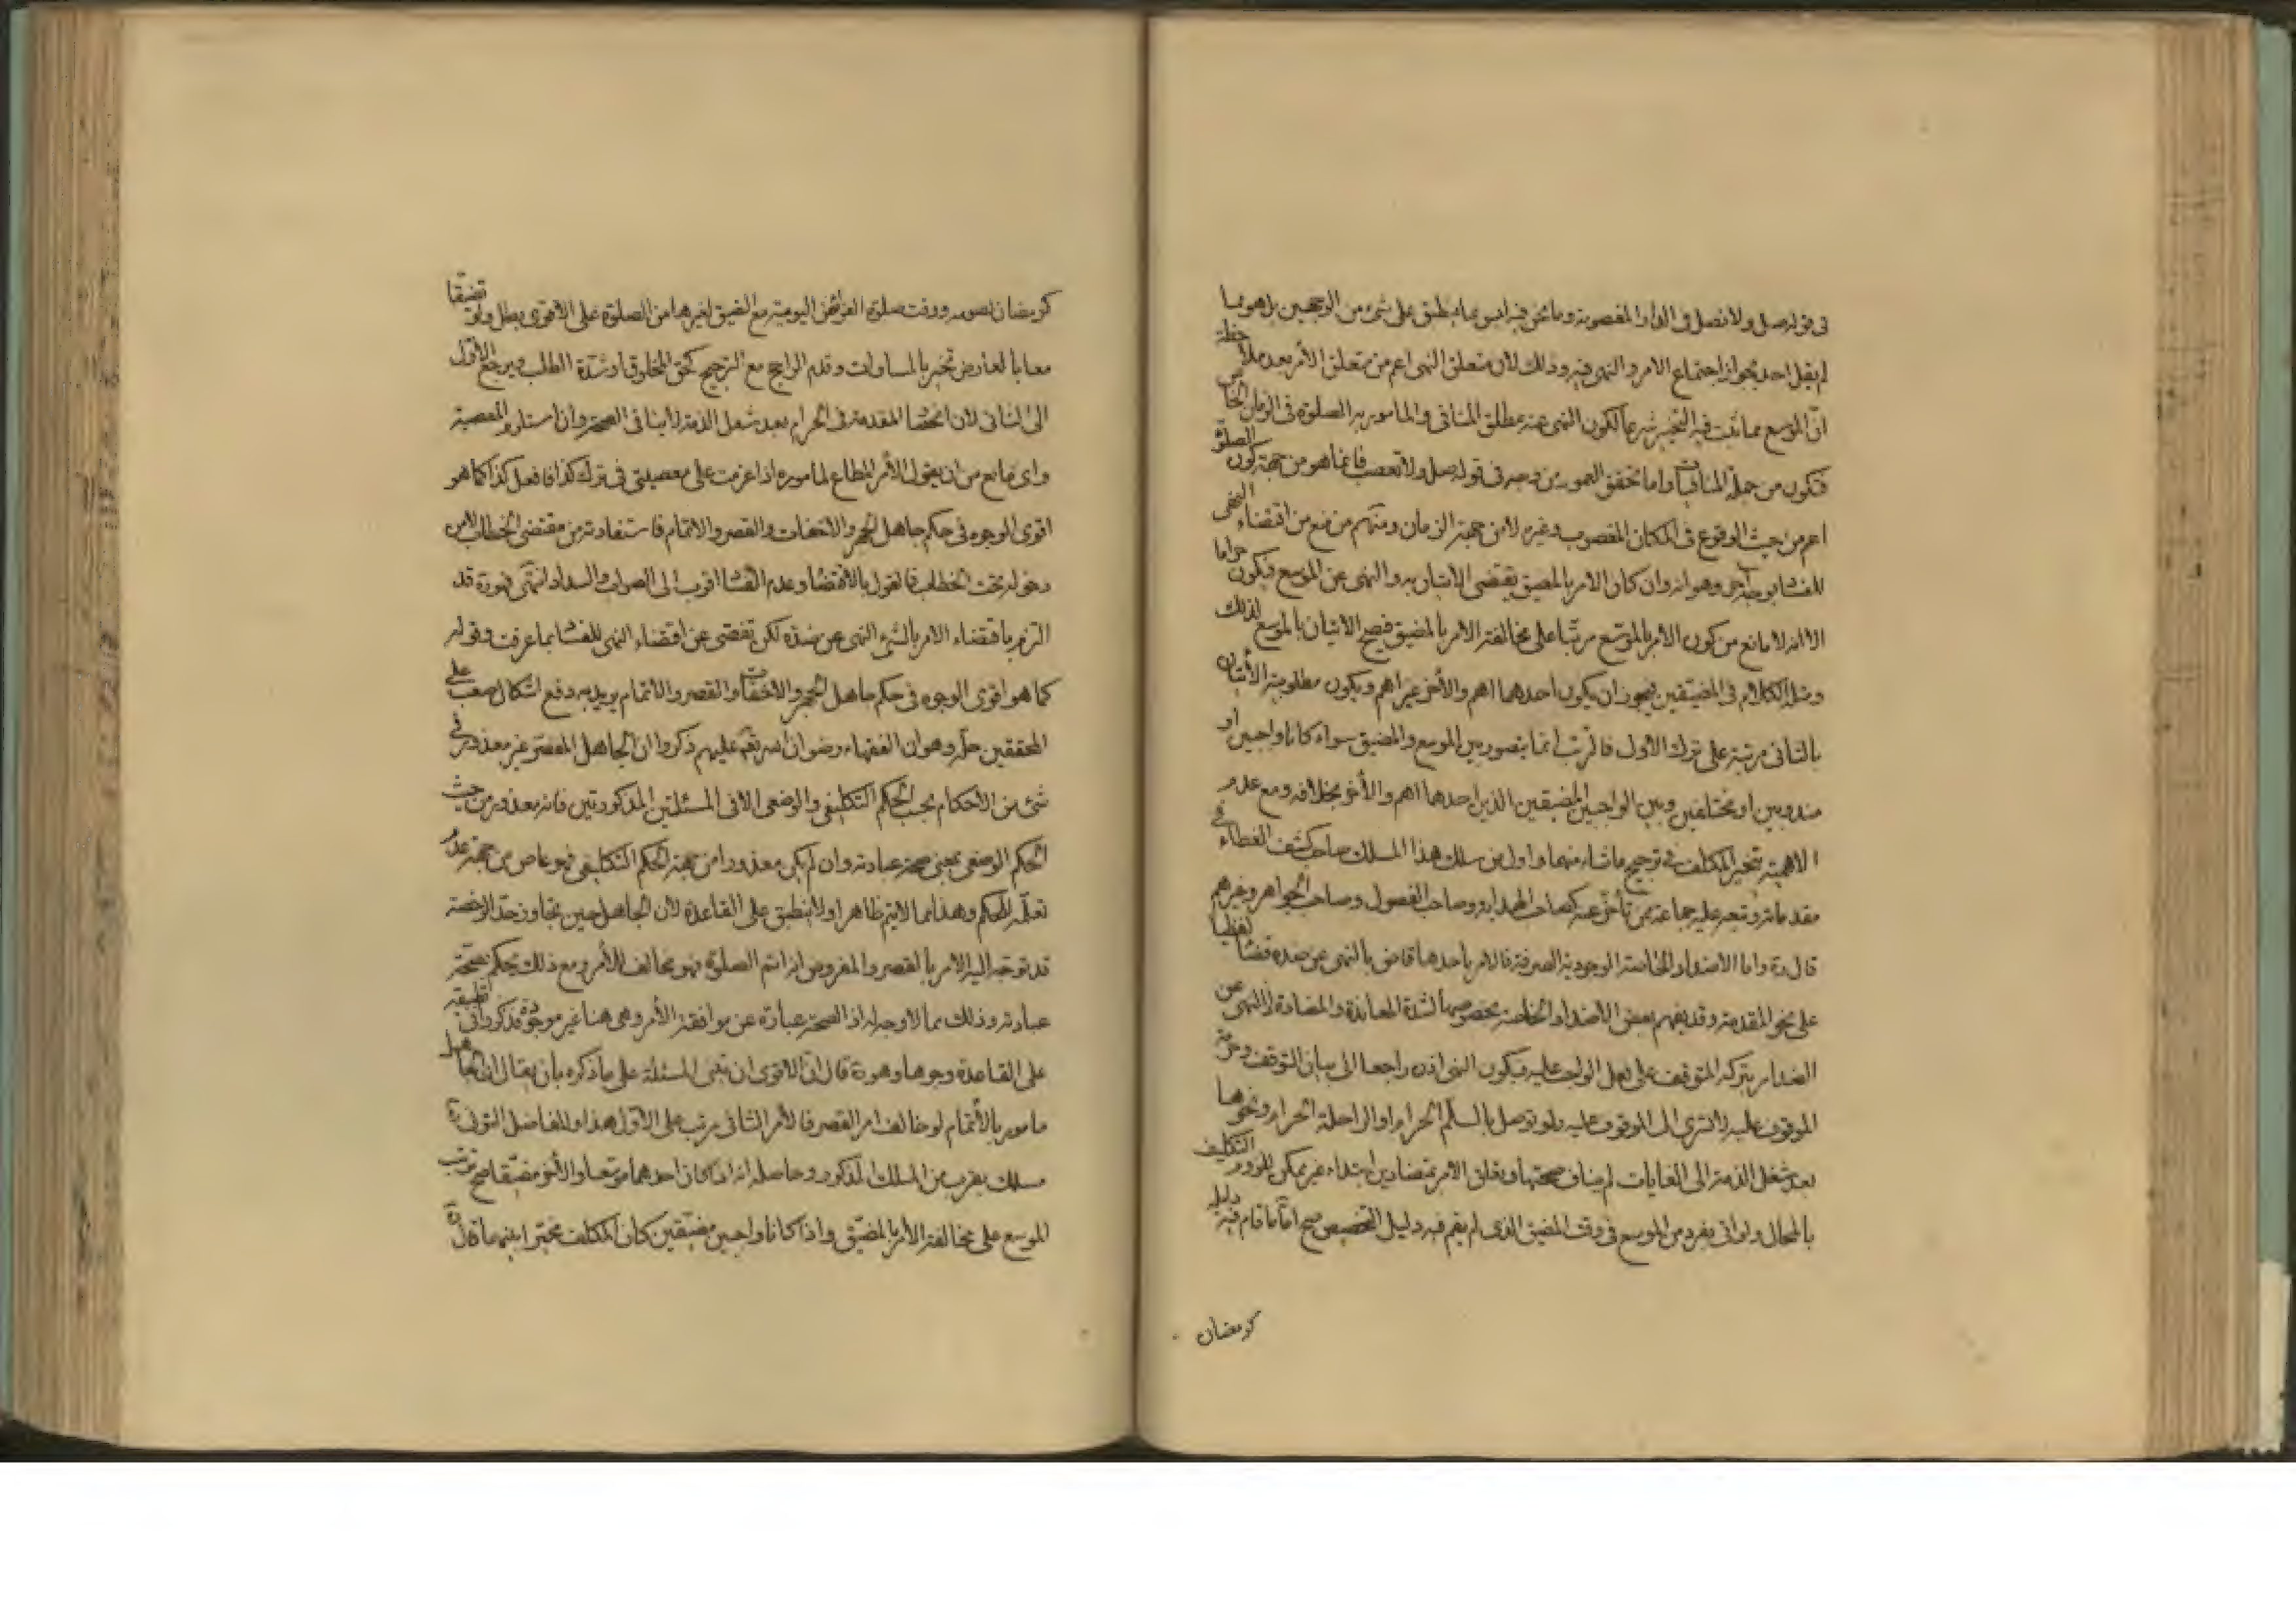 فى قوله صل ولا تصل فى الدار المغصوبة وما نحن فيه ليس مما ينطبق على شئ من الوجهين بل هو مما
لم يقل احد بجواز اجتماع الامر والنهى فيه وذلك لان متعلق النهى اعم من متعلق الأمر بعد ملاحظة
انّ الموسع مما ثبت فيه التخيير شرعا لكون النهى عنه مطلق المنافى والمامور به الصلوة فى الزمان الخاص
فتكون من جملة المنافيات واما تحقق العموم من وجه فى قوله صل ولا تغصب فانما هو من جهة كون الصلوة
اعم من حيث الوقوع فى المكان المغصوب وغيره لا من جهة الزمان ومنهم من منع من اقتضاء النهى
للفساد بوجه اخر وهو انه وان كان الامر بالمضيق يقتضى الاتيان به والنهى عن الموسع فيكون حراما
الا انه لا مانع من كون الأمر بالموسّع مرتبا على مخالفة الامر بالمضيق فيصح الاتيان بالموسع لذلك
ومثله الكلام فى المضيقين فيجوز ان يكون احدهما اهم والأخر غير اهم ويكون مطلوبية الأتيان
بالثانى مرتبة على ترك الأول فالترتب انما يتصور بين الموسع والمضيق سواء كانا واجبين او
مندوبين او مختلفين وبين الواجبين المضيقين الذين احدهما اهم والأخر بخلافه ومع عدم
الاهمية يتخير المكلف فى ترجيح ما شاء منهما واول من سلك هذا المسلك صاحب كشف الغطاء فى
مقدماته وتبعه عليه جماعة ممن تأخر عنه كصاحب الهداية وصاحب الفصول وصاحب الجواهر وغيرهم
قال ره واما الاضداد الخاصة الوجودية الصرفة فالامر باحدها قاض بالنهى عن ضده قضاء لفظيا
على نحو المقدمة وقد يفهم بعض الأضداد الخاصة بخصوصها لشدة المعاندة والمضادة والنهى عن
الضد امر بتركه المتوقف على فعل الواجب عليه فيكون النهى اذن راجعا الى بيان التوقف وحرمة
الموقوف عليه لا تسرى الى الموقوف عليه ولو توصل بالسلم الحرام او الراحلة الحرام ونحوها
بعد شغل الذمة الى الغايات لم يناف صحتها وتعلق الامر بمتضادين ابتداء غير ممكن للزوم التكليف
بالمحال ولو اتى بفرد من الموسع فى وقت المضيق الذى لم يقم فيه دليل التخصيص صح امّا ما قام فيه دليل
كرمضان
كرمضان لصومه ووقت صلوة الفرائض اليومية مع الضيق لغيرها من الصلوة على الاقوى بطل ولو تضيقا
معا بالعارض تخير بالمساوات وقدم الراجح مع الترجيح كحق المخلوق او شدة الطلب ويرجع الأول
الى الثانى لان انحصار المقدمة فى الحرام بعد شغل الذمة لا ينافى الصحة وان استلزم المعصية
واى مانع من ان يقول الأمر المطاع لمأموره اذا عزمت على معصيتى فى ترك كذا فافعل كذا كما هو
اقوى الوجوه فى حكم جاهل الجهر والاخفات والقصر والاتمام فاستفادته من مقتضى الخطاب لا من
دخوله تحت الخطاب فالقول بالاقتضاء وعدم الفساد اقرب الى الصواب والسداد انتهى فهو ره قد
التزم باقتضاء الامر بالشئ النهى عن ضده لكن تفصّى عن اقتضاء النهى للفساد بما عرفت وقوله
كما هو اقوى الوجوه فى حكم جاهل الجهر والاخفات والقصر والاتمام يريد به دفع اشكال صعب على
المحققين حلّه وهو ان الفقهاء رضوان الله تعالى عليهم ذكروا ان الجاهل المقصر غير معذور فى
شئ من الأحكام بحسب الحكم التكليفى والوضعى الا فى المسئلتين المذكورتين فانه معذور من حيث
الحكم الوضعى بمعنى صحة عبادته وان لم يكن معذورا من جهة الحكم التكليفى فهو عاص من جهة عدم
تعلّمه للحكم وهذا مما لا يتم ظاهرا ولا ينطبق على القاعدة لان الجاهل حين تجاوز حدّ الرخصة
قد توجّه اليه الامر بالقصر والمفروض انه اتم الصلوة فهو مخالف للأمر ومع ذلك يحكم بصحة
عبادته وذلك مما لا وجه له اذ الصحة عبارة عن موافقة الأمر وهى هنا غير موجودة فذكروا فى تطبيقه
على القاعدة وجوها وهو ره قال ان الاقوى ان تبنى المسئلة على ما ذكره بأن يقال ان الجاهل
مامور بالأتمام لو خالف امر القصر فالأمر الثانى مرتب على الأول هذا وللفاضل التونى ره
مسلك يقرب من المسلك المذكور وحاصله انه اذا كان احدهما موسّعا والأخر مضيّقا صح ترتب
الموسع على مخالفة الأمر بالمضيّق واذا كانا واجبين مضيّقين كان المكلف مخيّرا بينهما قال ره